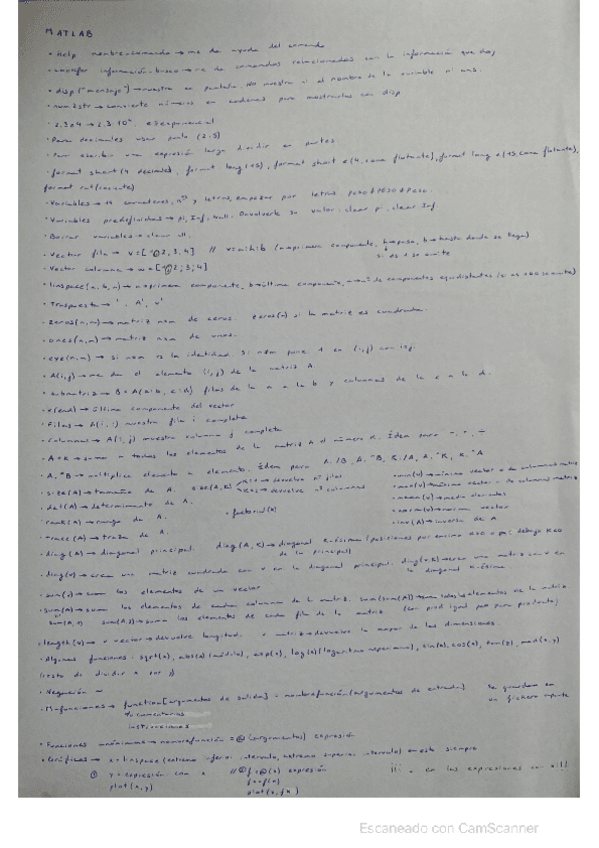 MATLAB
• Help nombre_comando → me da ayuda del comando
• lookfor información_busco → me da comandos relacionados con la información que doy
• disp("mensaje") → muestra en pantalla. No muestra ni el nombre de la variable ni ans.
• num2str → convierte números en cadenas para mostrarlos con disp
• 2.3e4 → 2.3·10⁴.
• Para decimales usar punto (2.5)
• Para escribir una expresión larga dividir en partes
• format short (4 decimales), format long (15), format short e (4, coma flotante), format long e (15, coma flotante),
format rat (racional)
• Variables → caracteres, nos y letras, empezar por letras.
• Variables predefinidas → pi, Inf, NaN. Devolverle su valor: clear pi, clear Inf.
• Borrar variables → clear all.
• Vector fila → v=[1,2,3,4] // v=a:h:b (a=primera componente, h=paso, b=hasta donde se llega)
si es 1 se omite
• Vector columna → w=[1;2;3;4]
• linspace(a,b,n) → a=primera componente, b=última componente, n=nº de componentes equidistantes
• Traspuesta → ', A', v'
• zeros(n,m) → matriz nxm de ceros. zeros(n) si la matriz es cuadrada.
• ones(n,m) → matriz nxm de unos.
• eye(n,m) → si n=m es la identidad. Si n≠m pone 1 en (i,j) con i=j.
• A(i,j) → me da el elemento (i,j) de la matriz A.
• submatriz → B=A(a:b, c:d) filas de la a a la b y columnas de la c a la d.
• v(end) → última componente del vector
• Filas → A(i,:) muestra fila i completa
• Columnas → A(:,j) muestra columna j completa
• A+K → suma a todos los elementos de la matriz A el número K. Ídem para
• A.*B → multiplica elemento a elemento. Ídem para A./B, A.^B, K./A, A.^K, K.^A
• size(A) → tamaño de A. size(A,K) K=1 → devuelve nº filas
K=2 → devuelve nº columnas
• min(v) → mínimo vector o de columnas matriz
• max(v) → máximo vector o de columnas matriz
• det(A) → determinante de A.
• mean(v) → media elementos
• rank(A) → rango de A.
• factorial(x)
• norm(v) → norma vector
• trace(A) → traza de A.
• inv(A) → inversa de A
• diag(A) → diagonal principal. diag(A,K) → diagonal K-ésima (posiciones por encima K>0 o por debajo K<0
de la principal)
• diag(v) → crea una matriz cuadrada con v en la diagonal principal. diag(v,K) → crea una matriz con v en
la diagonal K-ésima.
• sum(v) → suma los elementos de un vector
• sum(A) → suma los elementos de cada columna de la matriz. sum(sum(A)) → suma todos los elementos de la matriz
sum(A,2) → suma los elementos de cada fila de la matriz. (Con prod igual pero para producto)
• length(v) → v vector → devuelve longitud. v matriz → devuelve la mayor de las dimensiones.
• Algunas funciones: sqrt(x), abs(x) (módulo), exp(x), log(x) (logaritmo neperiano), sin(x), cos(x), tan(x), mod(x,y)
(resto de dividir x por y)
• Negación ~
• M-funciones → function[argumentos de salida] = nombrefunción(argumentos de entrada) Se guardan en
un fichero aparte
% comentarios
instrucciones
• Funciones anónimas → nombrefunción = @(argumentos) expresión
• Gráficas → x=linspace(extremo inferior intervalo, extremo superior intervalo) en esto siempre
① y=expresión con x // ② f=@(x) expresión
plot(x,y)
fx=f(x)
plot(x,fx)
¡¡¡ . en las expresiones con x!!!
Escaneado con CamScanner